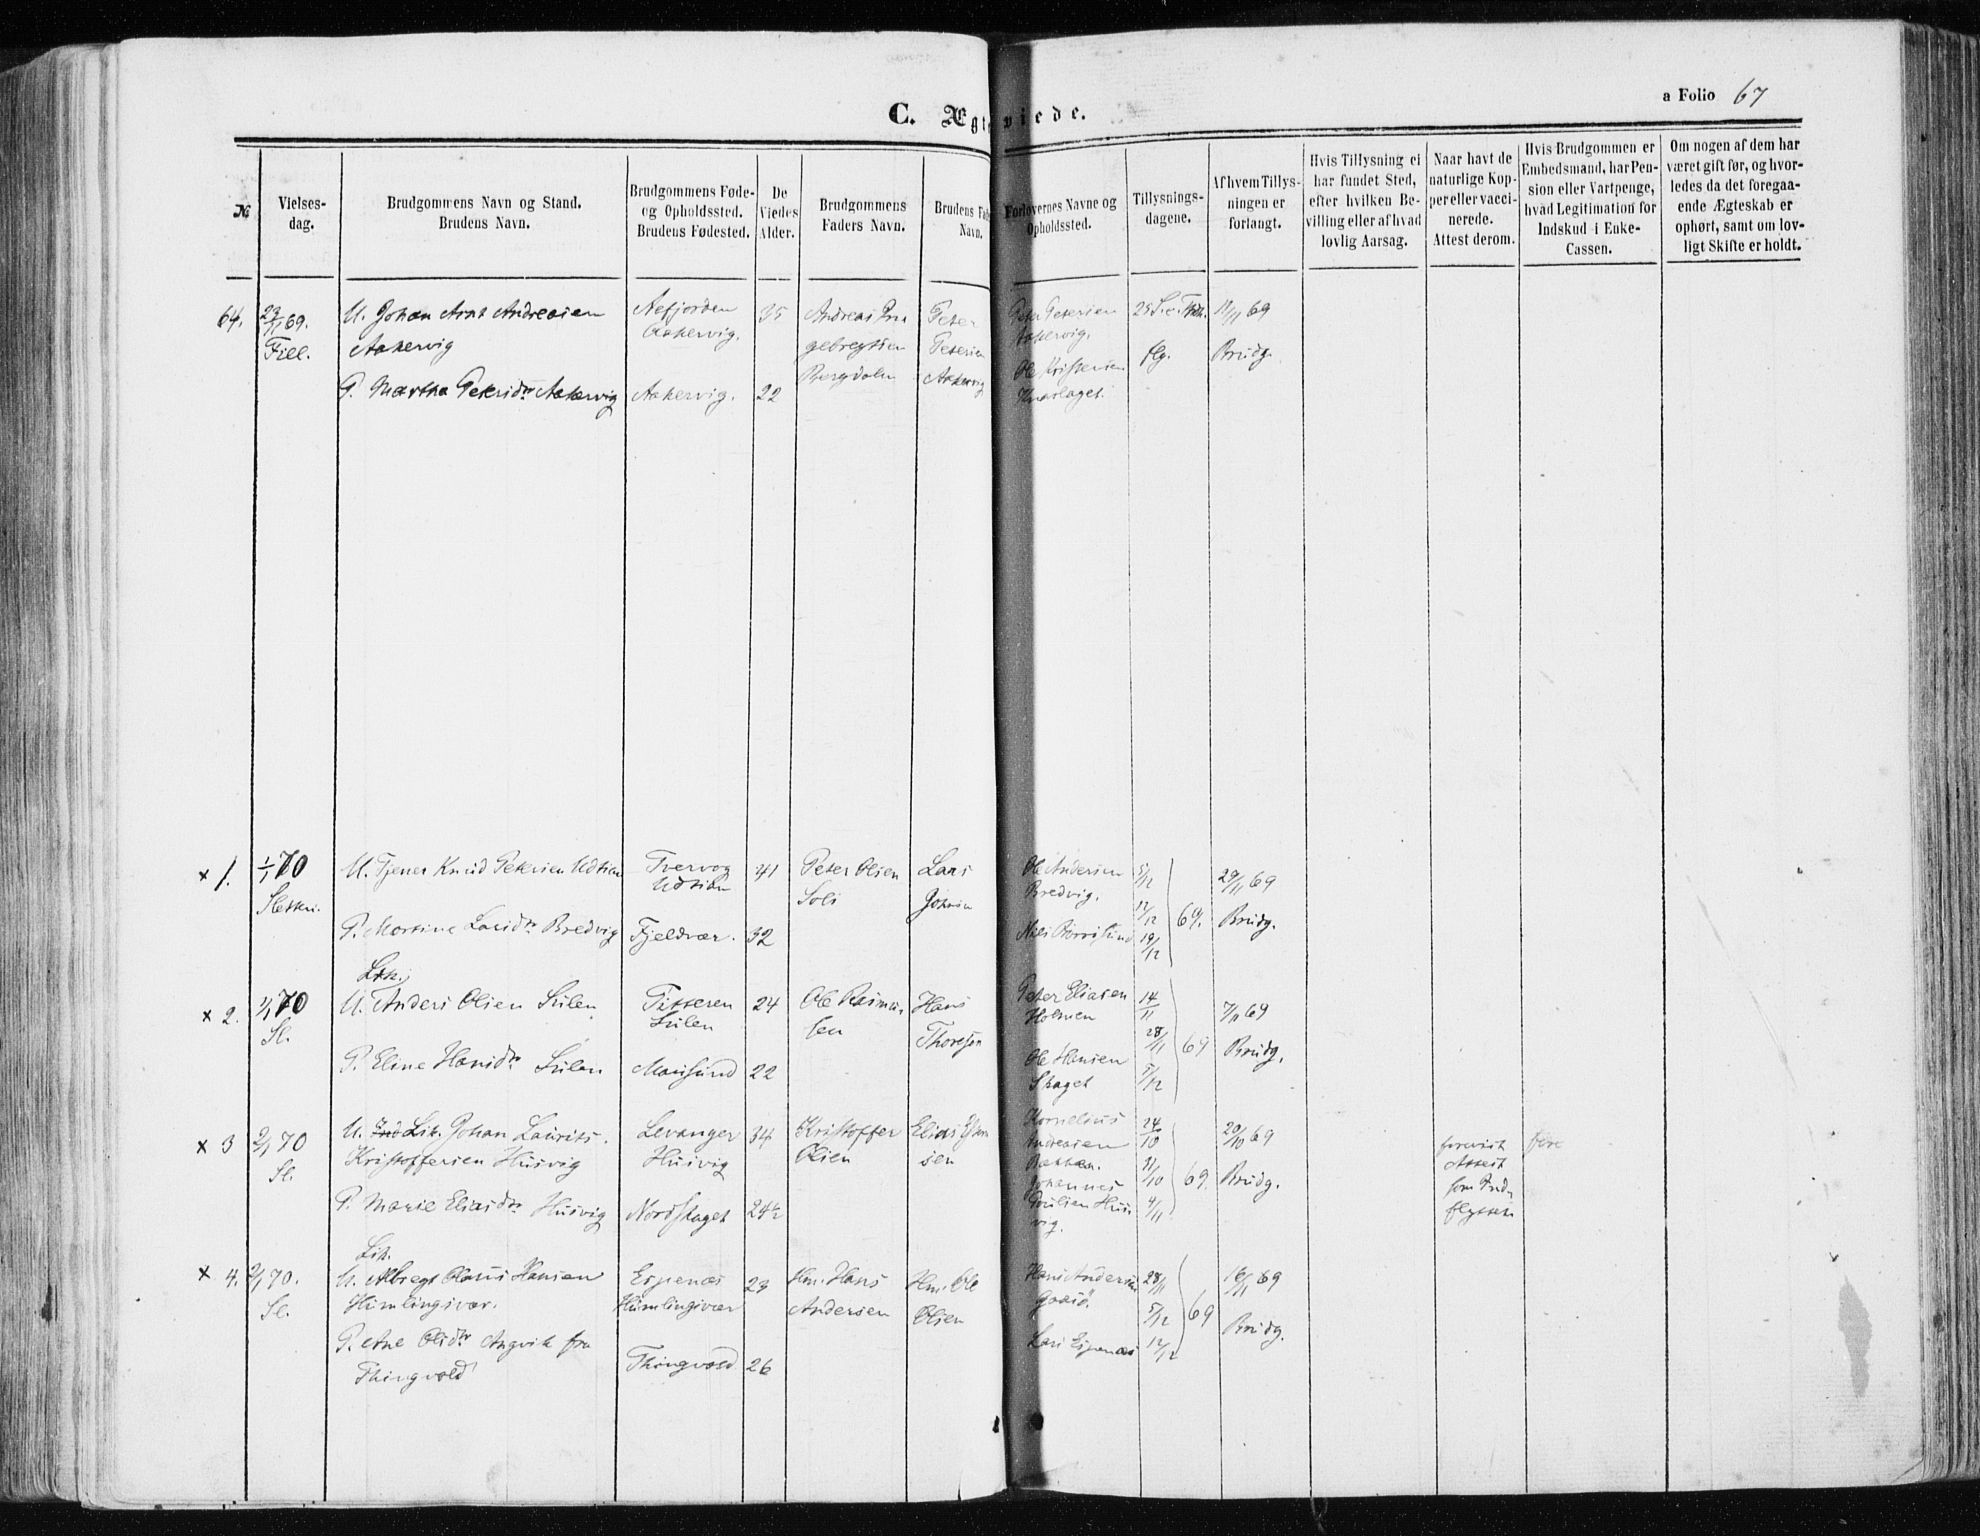 C. Ægteviede.
a Folio 67
№
Vielses-
dag.
Brudgommens Navn og Stand.
Brudens Navn.
Brudgommens Føde-
og Opholdssted.
Brudens Fødested.
De
Viedes
Alder.
Brudgommens
Faders Navn.
Brudens Faders
Navn.
Forlovernes Navne og
Opholdssted.
Tillysnings-
dagene.
Af hvem Tillys-
ningen er
forlangt.
Hvis Tillysning ei
har fundet Sted,
efter hvilken Be-
villing eller af hvad
lovlig Aarsag.
Naar havt de
naturlige Kop-
per eller vacci-
nerede.
Attest derom.
Hvis Brudgommen er
Embedsmand, har Pen-
sion eller Vartpenge,
hvad Legitimation for
Indskud i Enke-
Cassen.
Om nogen af dem har
været gift før, og hvor-
ledes da det foregaa-
ende Ægteskab er
ophørt, samt om lov-
ligt Skifte er holdt.
64.
69.
Fill.
U. Johan Arnt Andreasen
Aakervig
P. Martha Petersdtr Aakervig
Aefjorden
Aakervig.
Aakervig.
35
22
Andreas In
gebregtsen
Bergdalen
Peter
Petersen
Aakervig
Peter Petersen
Aakervig.
Ole Kristensen
Knarlaget.
flg.
11/11 69
Brudg.
x 1.
1/1 70
Sletten.
U. Tjener Knud Petersen Udsian
P. Martine Larsdtr Bredvig
Tvervog
Udsian
Fjeldvær.
41
32
Peter Olsen
Soli
Lars
Johnsen
Ole Andersen
Bredvig.
Niels
5/12
12/12
19/12
69.
29/11 69
Brudg.
x 2.
1/1 70
Sl.
Lik.
U. Anders Olsen Sulen
P. Eline Hansdtr Sulen
Titteren
Sulen
Mausund
24
22
Ole Rasmus
sen
Hans
Thoresen
Peter Eliasen
Holmen
Ole Hansen
Skaget
14/11
28/11
5/12
69
7/11 69
Brudg.
x 3
2/1 70
Sl.
U. Ind Lik. Johan Laurits
Kristoffersen Husvig
P. Marie Eliasdtr Husvig
Levanger
Husvig
Nordskaget
34
24½
Kristoffer
Olsen
Elias
sen
Kornelius
Andreasen
Bakken.
Johannes
Poulsen Hus
vig.
24/10
31/10
4/11
69.
20/10 69
Brudg.
forevist
Attest
som Ind
flyttet
x 4.
2/1 70.
Sl.
Lik.
U. Albregt Olaus Hansen
Humlingsvær.
P. Ane Olsdtr Angvik fra
Thingvold
Espenæs
Humlingsvær
Thingvold
23
26
Hm. Hans
Andersen
Hm. Ole
Olsen
Hans Andersen
Gaasø.
Lars Espenæs
28/11
5/12
12/12
69
16/11 69
Brudg.